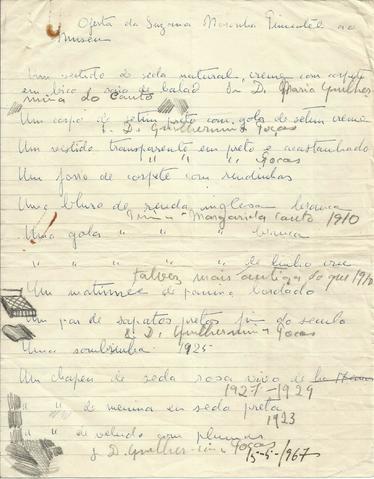 Oferta da Suzana Noronha Pimentel ao
Museu
Um vestido de seda natural, creme com corpete
em bico saia de balão da D. Maria Guilher
mina do Canto
Um corpo de setim preto com gola de setim creme
D. Guilhermina Goças
Um vestido transparente em preto e acastanhado
" " " Goças
Um forro de corpete com rendinhas
Uma blusa de renda inglesa branca
Margarida Canto 1910
Uma gola " " branca
" " " " de linho cru
talvez mais antiga do que 1910
Um matinée de panina bordado
Um par de sapatos pretos fim do seculo
D. Guilhermina Goças
Uma sombrinha 1925
Um chapeu de seda rosa vivo de
1927-1929
" " de menina em seda preta
1923
" " de veludo com plumas
D. Guilhermina Goças 15-5-1967